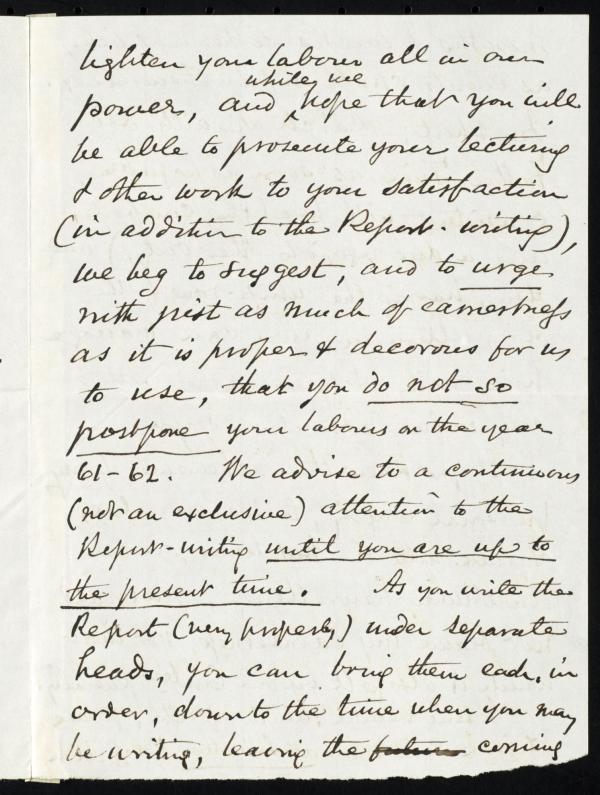 lighten your labour all in our
while we
power, and ^ hope that you will
be able to prosecute your lecturing
& other work to your satisfaction
(in addition to the Report-writing),
we beg to suggest, and to urge
with just as much of earnestness
as it is proper & decorous for us
to use, that you do not so
postpone your labours on the year
61-62. We advise to a continuous
(not an exclusive) attention to the
Report-writing until you are up to
the present time. As you write the
Report (very properly) under separate
heads, you can bring them each, in
order, down to the time when you may
be writing, leaving the future coming